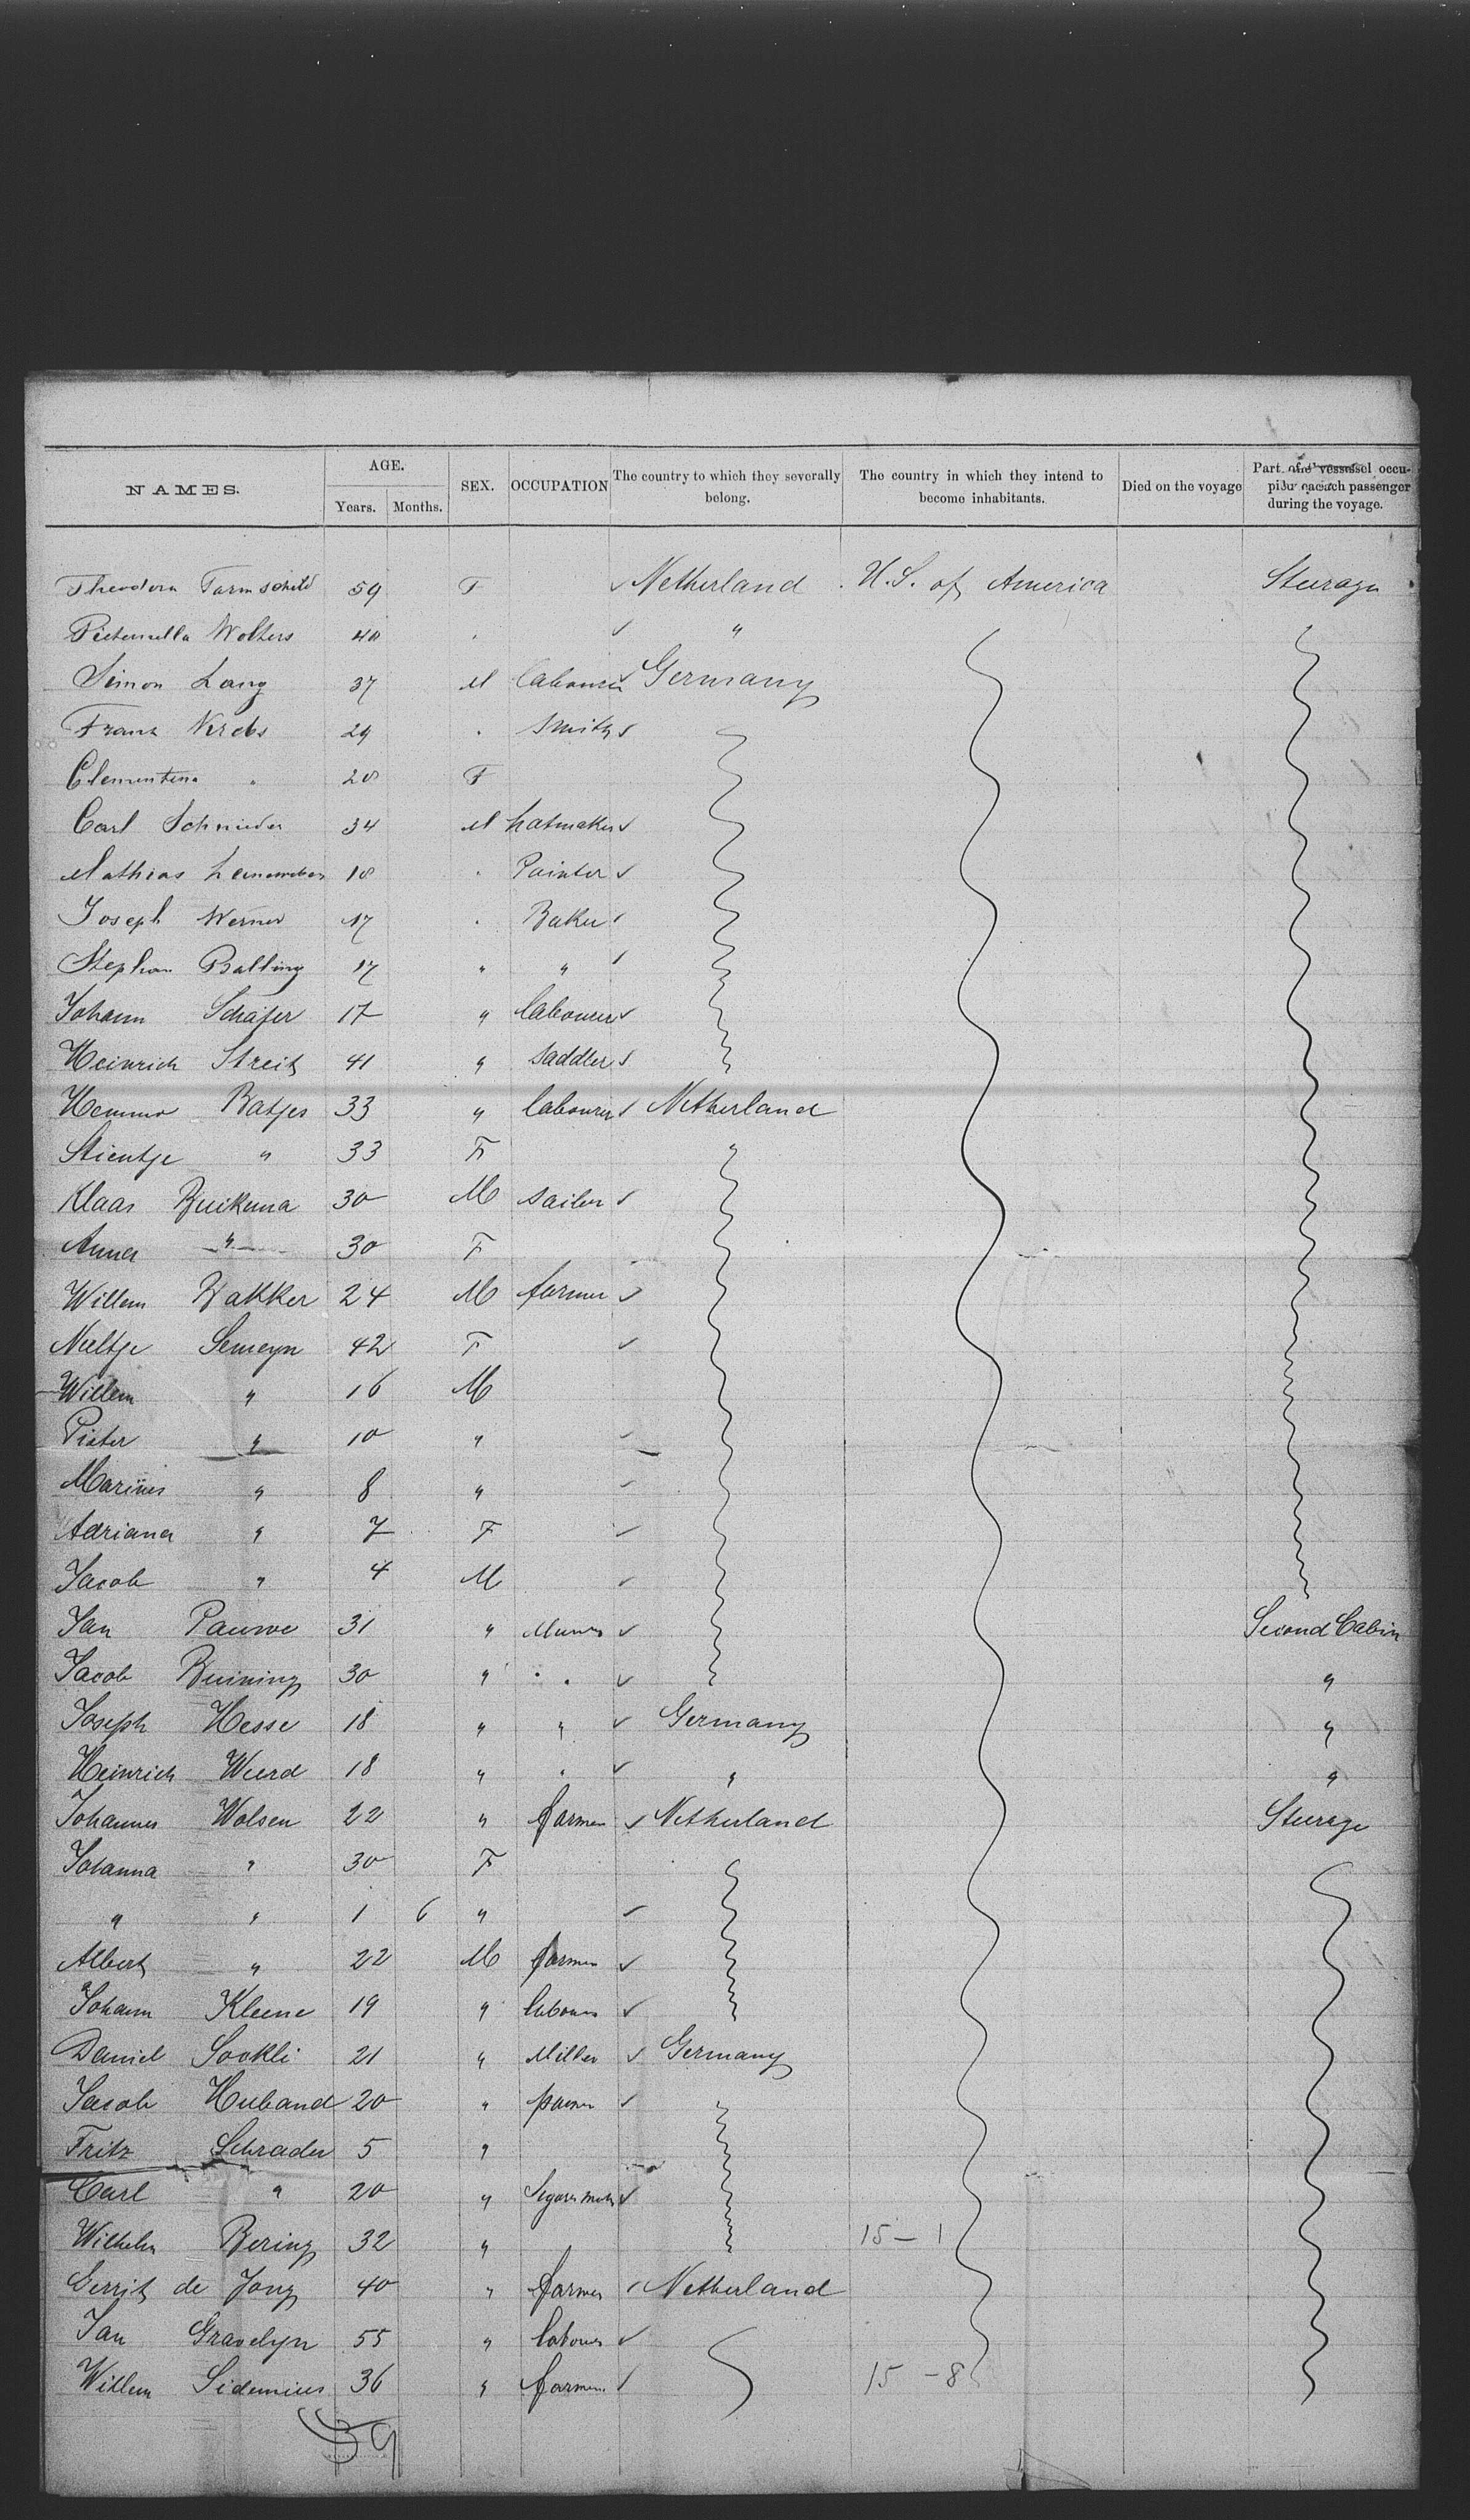 NAMES. AGE. Years. Months. SEX. OCCUPATION The country to which they severally belong. The country in which they intend to become inhabitants. Died on the voyage Part of the vessel occupied each passenger during the voyage.
Theodora 59 F ✓ Netherland U.S. of America Steerage
Wolters 40 ✓ "
Simon Lang 37 M labourer ✓ Germany
Franz Krebs 29 smith ✓
Clementina " 28 F
Carl Schnieder 34 M hatmaker ✓
Mathias 18 Painter ✓
Joseph Werner 17 Baker ✓
Stephan Balling 17 " " ✓
Johann Schäfer 17 " labourer ✓
Heinrich Streit 41 " saddler ✓
Hemmo Batjes 33 " labourer ✓ Netherland
Stientje " 33 F "
Klaas Buikema 30 M sailor ✓
Anna " 30 F
Willem Bakker 24 M farmer ✓
Neeltje Semeyn 42 F ✓
Willem " 16 M
Pieter " 10 " ✓
Marinus " 8 " ✓
Adriana " 7 F ✓
Jacob " 4 M ✓
Jan Pauwe 31 " ✓ Second Cabin
Jacob Buining 30 " " ✓ "
Joseph Hesse 18 " " ✓ Germany "
Heinrich Weerd 18 " " ✓ " "
Johannes Wolsen 22 " farmer ✓ Netherland Steerage
Johanna " 30 F
" " 1 6 " ✓
Albert " 22 M farmer ✓
Johann Kleene 19 " labourer ✓
Daniel Sookli 21 " Miller ✓ Germany
Jacob Huband 20 " ✓
Fritz Schrader 5 "
Carl " 20 " ✓
Wilhelm Bering 32 " 15 - 1
Gerrit de Jong 40 " farmer ✓ Netherland
Jan Gravelyn 55 " labourer ✓
Willem Sidenius 36 " farmer ✓ 15 - 8
39